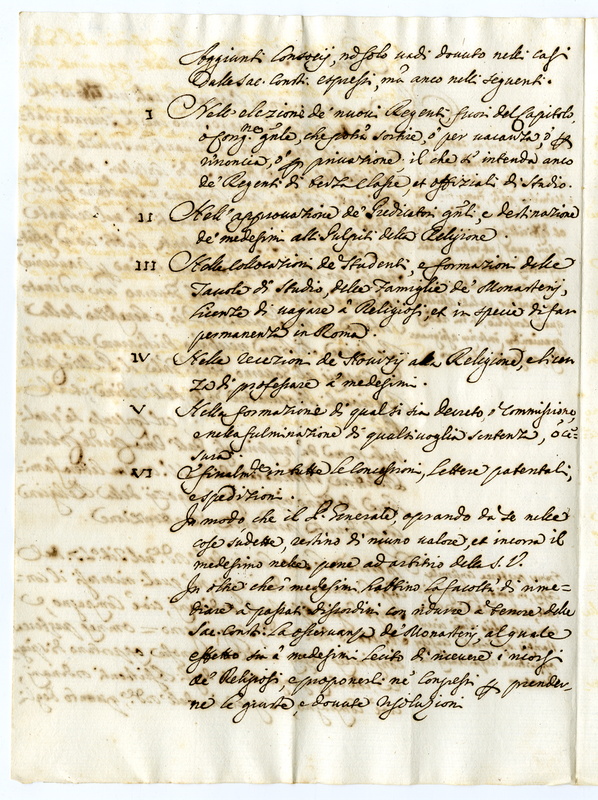 Aggiunti Consorij, nõ solo vadi dovuto nelli casi
dalle Sac. Consti. espressi, mà anco nelli seguenti.
I Nell' elezione de' nuovi Regenti fuori del Capitolo,
ò Cong.ne gñle, che potrà sortire, ò per vacanza, ò p
rinoncia, ò p privazione, il che s'intenda anco
de' Regenti di terza Classe, et offiziali di Studio.
II Nell' approvazione de' Predicatori gñli, e destinazione
de' medesimi alli Pulpiti della Religione.
III Nelle Collocazioni de' Studenti, e formazioni delle
Tavole di Studio, delle Famiglie de' Monasterij,
licenze di vagare à Religiosi, et in specie di far
permanenza in Roma.
IV Nelle recezioni de' Novizij alla Religione, e licen-
ze di professare à medesimi.
V Nella formazione di qualsisia decreto, ò Commissione,
e nella fulminazione di qualsivoglia sentenza, ò ce-
sura.
VI E finalm.te in tutte le Concessioni, lettere patentali,
e spedizioni.
In modo che il P. Generale, oprando da se nelle
cose sudette, restino di niuno valore, et incorra il
medesimo nelle pene ad arbitrio della S. V.
In oltre che à medesimi habbino la facoltà di rime-
diare à passati disordini con ridurre à tenore delle
Sac. Consti. la osservanza de' Monasterij, al quale
effetto sia à medesimi lecito di ricevere i ricorsi
de' Religiosi, e proponerli ne' Congressi p prender-
ne le giuste, e dovute risoluzioni